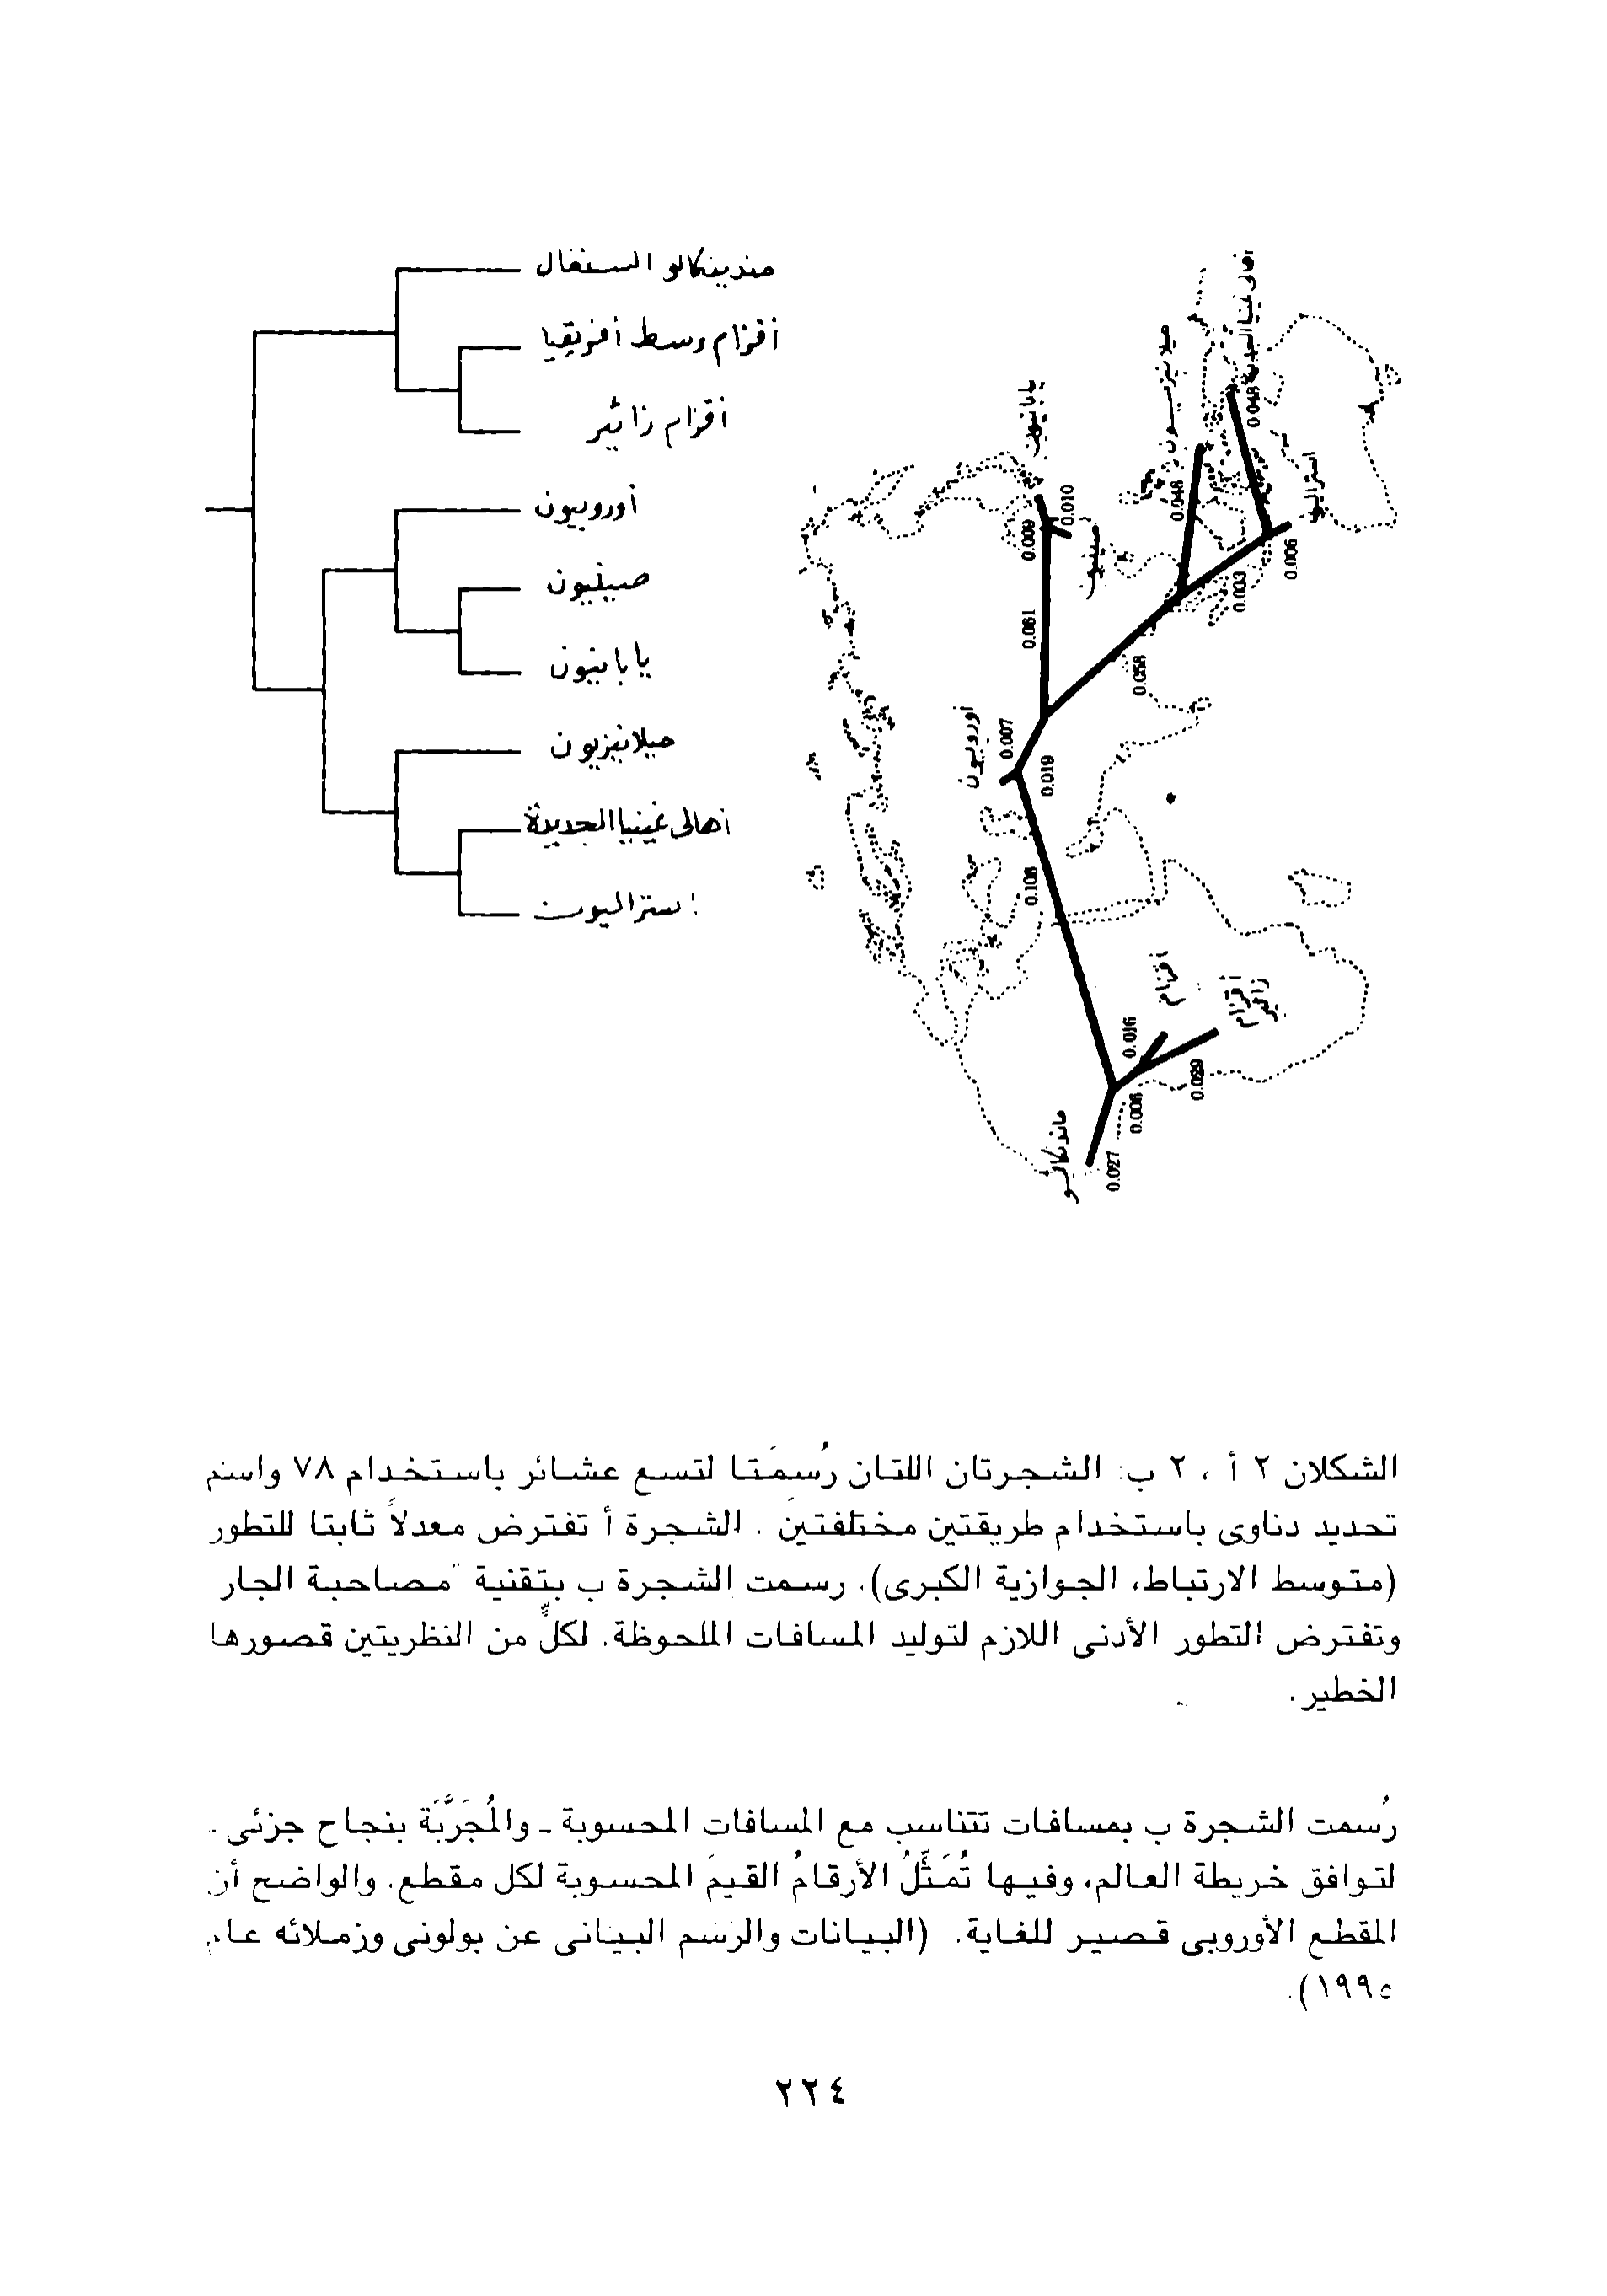 مندينكالو السنغال
أقزام وسط أفريقيا
أقزام زائير
أوروبيون
صينيون
يابانيون
ميلانيزيون
أهالى غينيا الجديدة
استراليون
أهالى غينيا الجديدة
0.048
ميلانيزيون
0.048
يابانيون
0.010
0.009
صينيون
استراليون
0.006
0.003
0.061
0.058
أوروبيون
0.007
0.019
0.108
أقزام
أقزام
زائير
0.016
0.029
0.006
ماندنكالو
0.027
الشكلان ٢ أ ، ٢ ب: الشجرتان اللتان رُسمَتا لتسع عشائر باستخدام ٧٨ واسم
تحديد دناوى باستخدام طريقتين مختلفتين . الشجرة أ تفترض معدلاً ثابتا للتطور
(متوسط الارتباط، الجوازية الكبرى). رسمت الشجرة ب بتقنية "مصاحبة الجار
وتفترض التطور الأدنى اللازم لتوليد المسافات الملحوظة. لكلٍّ من النظريتين قصورها
الخطير.
رُسمت الشجرة ب بمسافات تتناسب مع المسافات المحسوبة ـ والمُجَرَّبَة بنجاح جزئى ـ
لتوافق خريطة العالم، وفيها تُمَثِّلُ الأرقامُ القيمَ المحسوبة لكل مقطع. والواضح أن
المقطع الأوروبى قصير للغاية. (البيانات والرسم البيانى عن بولونى وزملائه عام
١٩٩٥).
٢٢٤